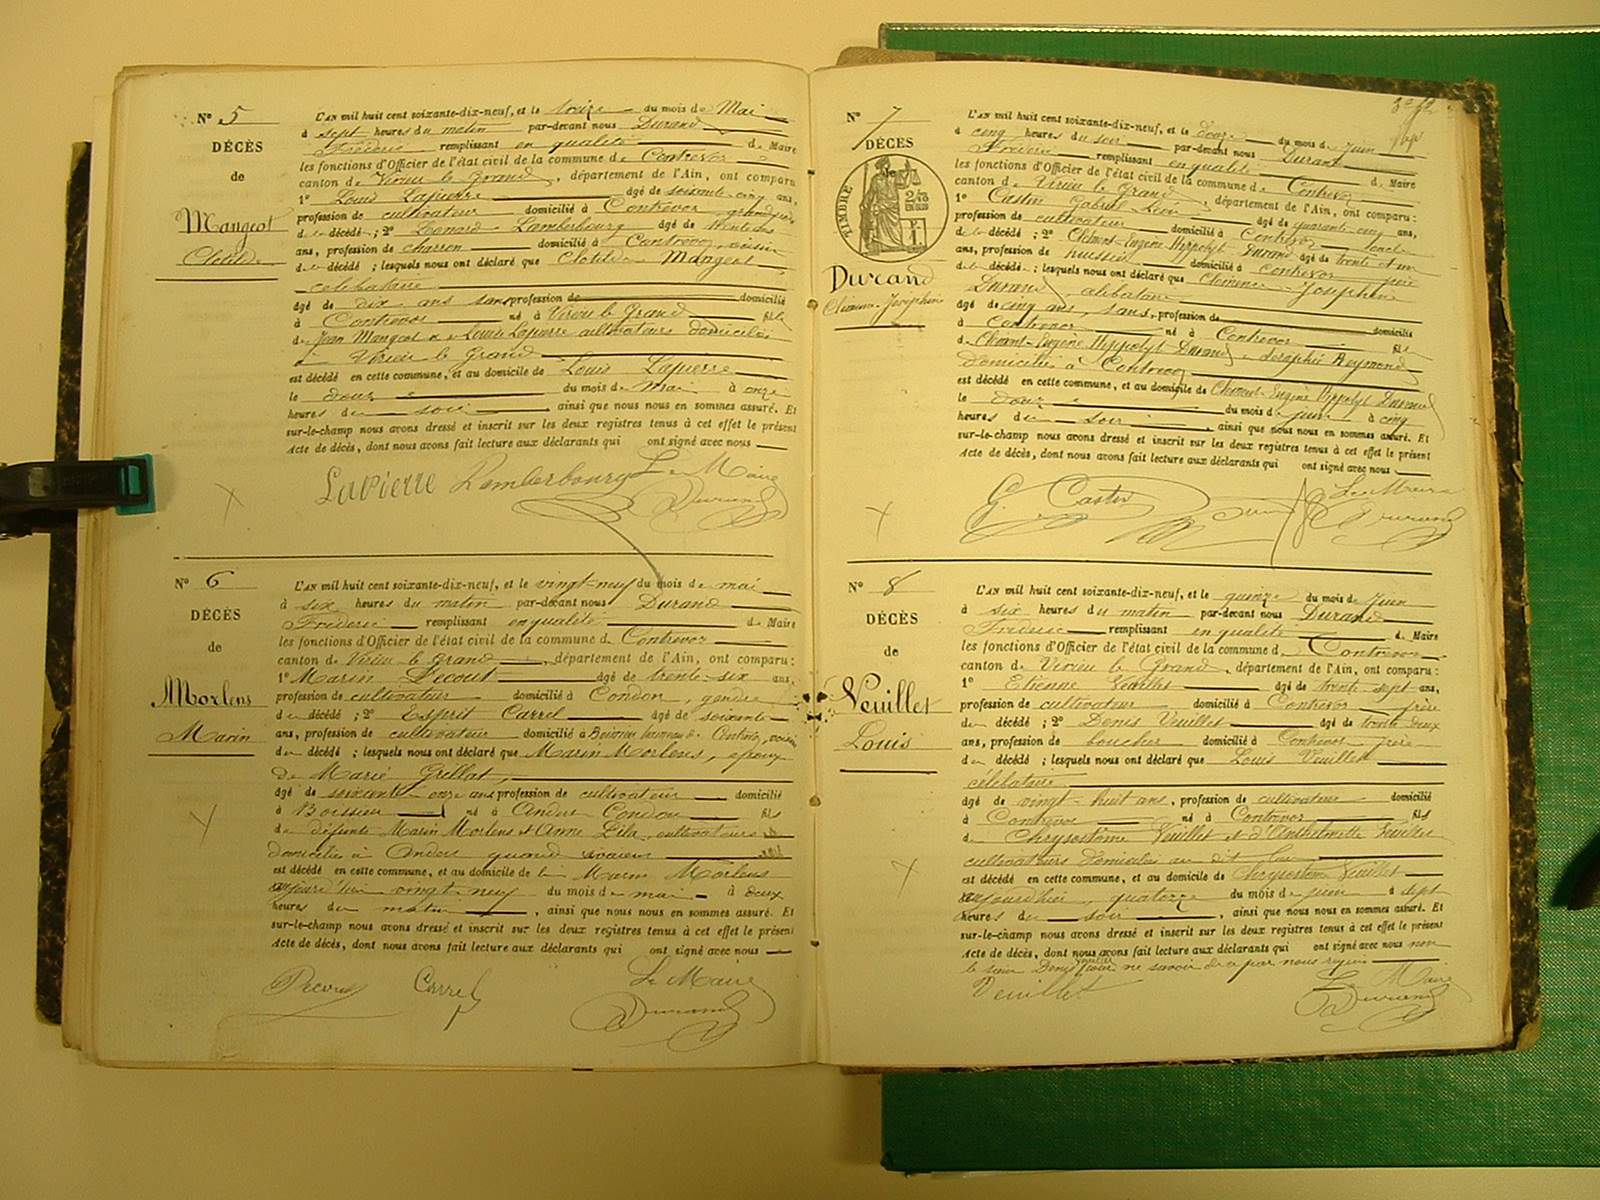 N° 5
DÉCÈS
de
Mangeot
Clotilde
L'AN mil huit cent soixante-dix-neuf, et le treize du mois de Mai
à sept heures du matin par-devant nous Durand
Fréderic remplissant en qualité de Maire
les fonctions d'Officier de l'état civil de la commune de Contrevoz
canton de Virieu le Grand, département de l'Ain, ont comparu
1° Louis Lapierre âgé de soixante-cinq ans,
profession de cultivateur domicilié à Contrevoz grand père
de la décédé ; 2° Léonard Lamberbourg âgé de trente
ans, profession de charron domicilié à Contrevoz, voisin
de la décédé ; lesquels nous ont déclaré que Clotilde Mangeot
célébataire
âgé de dix ans sans profession de domicilié
à Contrevoz né à Virieu le Grand fille
de Jean Mangeot et de Louise Lapierre cultivateurs domiciliés
à Virieu le Grand
est décédé en cette commune, et au domicile de Louis Lapierre
le douze du mois de Mai à onze
heures du soir ainsi que nous nous en sommes assuré. Et
sur-le-champ nous avons dressé et inscrit sur les deux registres tenus à cet effet le présent
Acte de décès, dont nous avons fait lecture aux déclarants qui ont signé avec nous
Lapierre Lamberbourg Le Maire
Durand
N° 6
DÉCÈS
de
Morlens
Marin
L'AN mil huit cent soixante-dix-neuf, et le vingt-neuf du mois de mai
à six heures du matin par-devant nous Durand
Fréderic remplissant en qualité de Maire
les fonctions d'Officier de l'état civil de la commune de Contrevoz
canton de Virieu le Grand, département de l'Ain, ont comparu :
1° Marin Decout âgé de trente-six ans,
profession de cultivateur domicilié à Condon, gendre
du décédé ; 2° Esprit Carrel âgé de soixante
ans, profession de cultivateur domicilié à Boissieu Contrevoz, voisin
du décédé ; lesquels nous ont déclaré que Marin Morlens, époux
de Marie Grillat,
âgé de soixante-onze ans profession de cultivateur domicilié
à Boissieu né à Andert Condon fils
de défunts Marin Morlens et Anne cultivateurs
domiciliés à Andert quand vivaient
est décédé en cette commune, et au domicile de lui Marin Morlens
aujourd'hui vingt-neuf du mois de mai à deux
heures du matin, ainsi que nous nous en sommes assuré. Et
sur-le-champ nous avons dressé et inscrit sur les deux registres tenus à cet effet le présent
Acte de décès, dont nous avons fait lecture aux déclarants qui ont signé avec nous
Decout Carrel Le Maire
Durand
N° 7
DÉCÈS
TIMBRE
Durand
Clémence-Joséphine
L'AN mil huit cent soixante-dix-neuf, et le douze du mois de Juin
à cinq heures du soir par-devant nous Durand
Fréderic remplissant en qualité de Maire
les fonctions d'Officier de l'état civil de la commune de Contrevoz
canton de Virieu le Grand, département de l'Ain, ont comparu :
1° Castin Gabriel âgé de quarante-cinq ans,
profession de cultivateur domicilié à Contrevoz oncle
de la décédé ; 2° Clément-Eugène Hippolyt Durand âgé de trente et un
ans, profession de huissier domicilié à Contrevoz père
de la décédé ; lesquels nous ont déclaré que Clémence Joséphine
Durand, célibataire
âgé de cinq ans, sans, profession de domicilié
à Contrevoz né à Contrevoz fille
de Clément-Eugène Hippolyt Durand Séraphie Reymond
domiciliés à Contrevoz
est décédé en cette commune, et au domicile de Clément-Eugène Hippolyt Durand
le douze du mois de juin à cinq
heures du soir, ainsi que nous nous en sommes assuré. Et
sur-le-champ nous avons dressé et inscrit sur les deux registres tenus à cet effet le présent
Acte de décès, dont nous avons fait lecture aux déclarants qui ont signé avec nous
G. Castin Le Maire
Durand
N° 8
DÉCÈS
de
Veuillet
Louis
L'AN mil huit cent soixante-dix-neuf, et le quinze du mois de Juin
à six heures du matin par-devant nous Durand
Fréderic remplissant en qualité de Maire
les fonctions d'Officier de l'état civil de la commune de Contrevoz
canton de Virieu le Grand, département de l'Ain, ont comparu :
1° Etienne Veuillet âgé de trente-sept ans,
profession de cultivateur domicilié à Contrevoz frère
du décédé ; 2° Denis Veuillet âgé de trente deux
ans, profession de boucher domicilié à Contrevoz frère
du décédé ; lesquels nous ont déclaré que Louis Veuillet
célébataire
âgé de vingt-huit ans, profession de cultivateur domicilié
à Contrevoz né à Contrevoz fils
de Chrysostôme Veuillet et d'Anthelmette Veuillet
cultivateurs domiciliés au dit lieu
est décédé en cette commune, et au domicile de Chrysostôme Veuillet
aujourd'hier, quatorze du mois de juin à sept
heures du soir, ainsi que nous nous en sommes assuré. Et
sur-le-champ nous avons dressé et inscrit sur les deux registres tenus à cet effet le présent
Acte de décès, dont nous avons fait lecture aux déclarants qui ont signé avec nous non
le sieur Denis pour ne savoir de ce par nous requis
Veuillet Le Maire
Durand